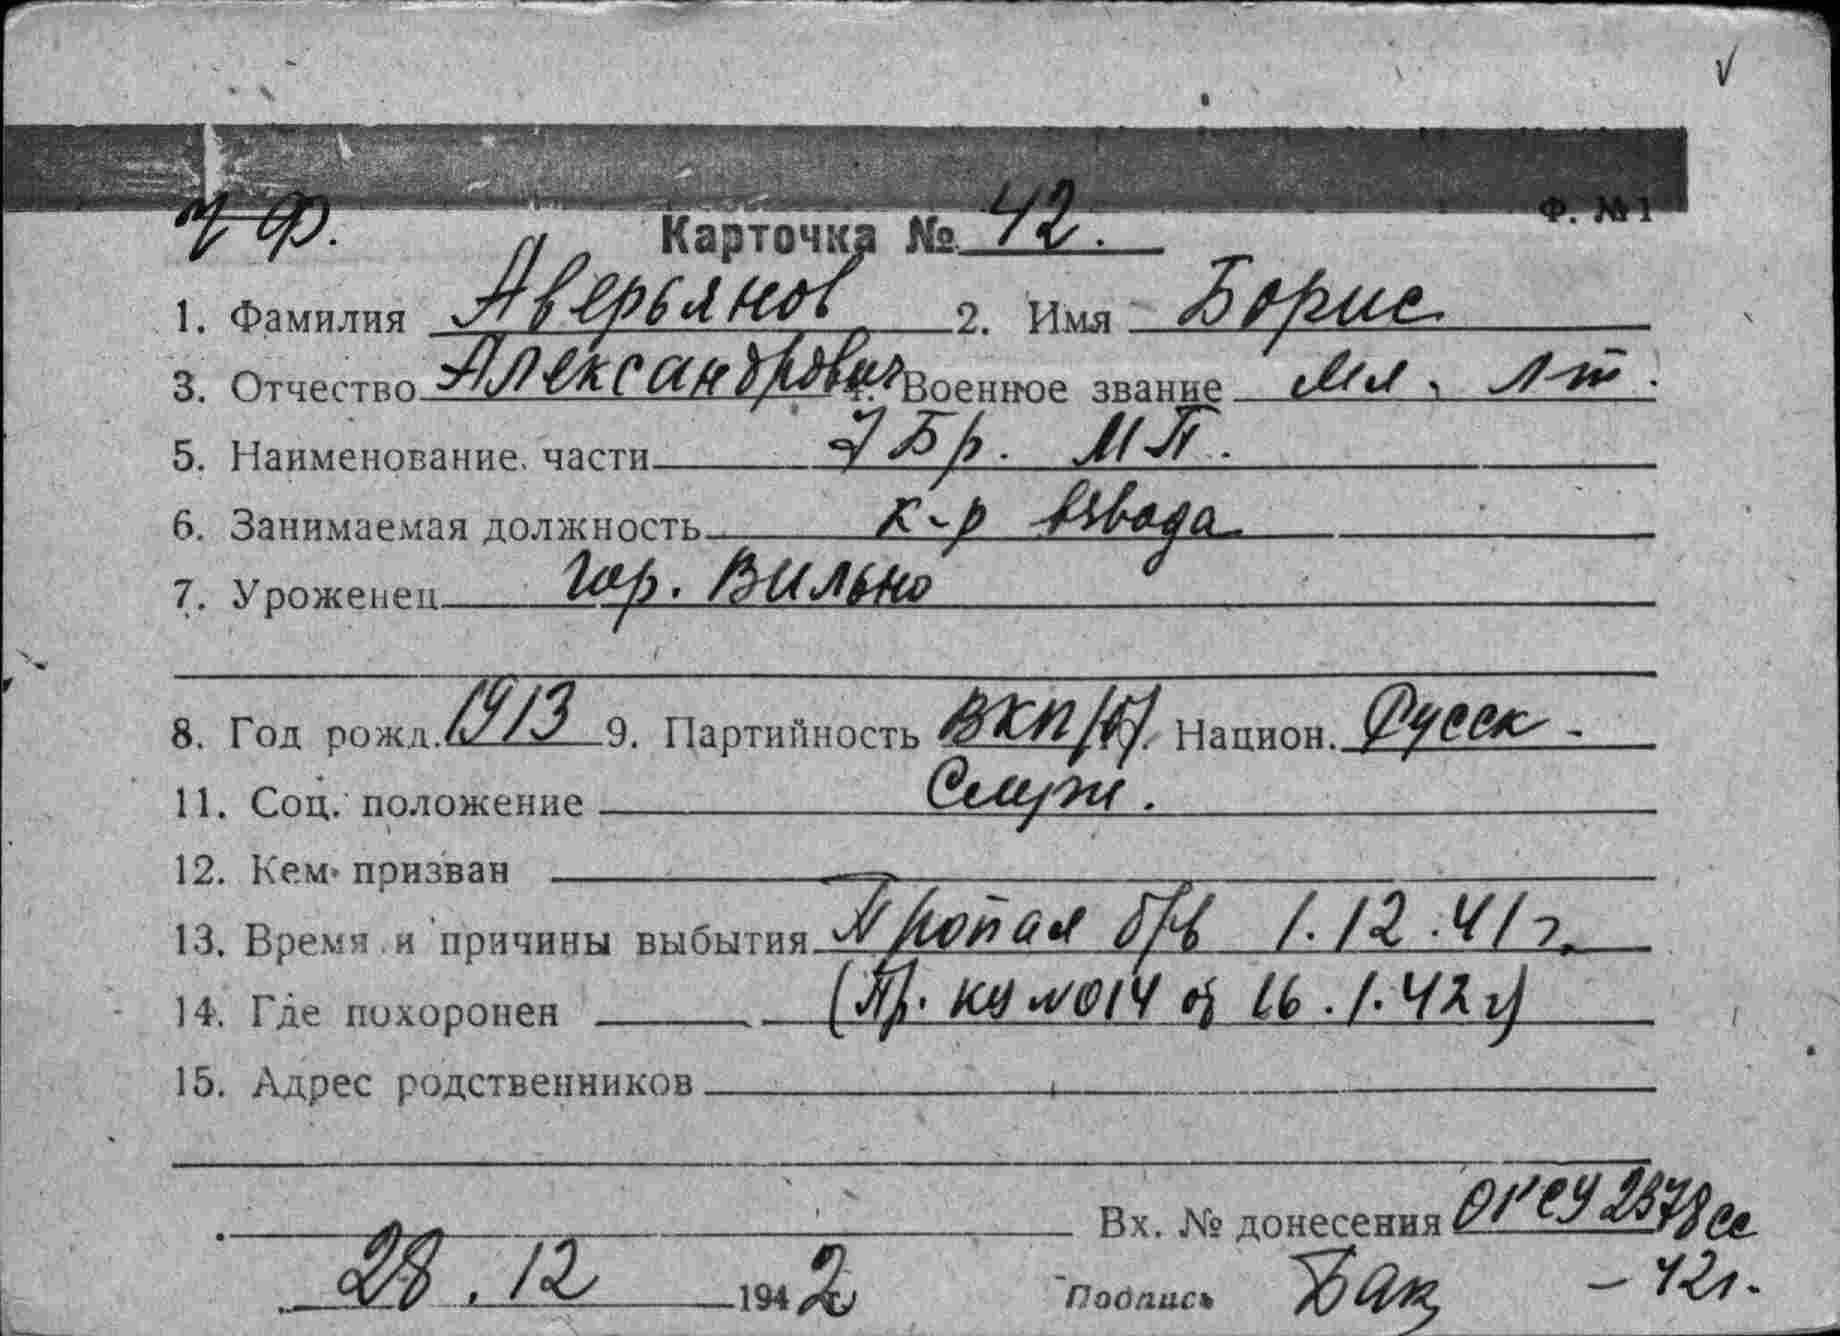 Ф. № 1
Ч Ф.
Карточка № 42.
1. Фамилия Аверьянов 2. Имя Борис
3. Отчество Александрович 4. Военное звание Мл. Лт.
5. Наименование части 7 Бр. МП.
6. Занимаемая должность К-р взвода
7. Уроженец гор. Вильно
8. Год рожд. 1913 9. Партийность ВКП/б/. Национ. Русск.
11. Соц. положение Служ.
12. Кем призван
13. Время и причины выбытия Пропал б/в 1.12.41 г.
14. Где похоронен (Пр. КУ №014 от 16.1.42 г)
15. Адрес родственников
Вх. № донесения ОУСУ 2378сс
28.12 1942 Подпись Бак -42г.